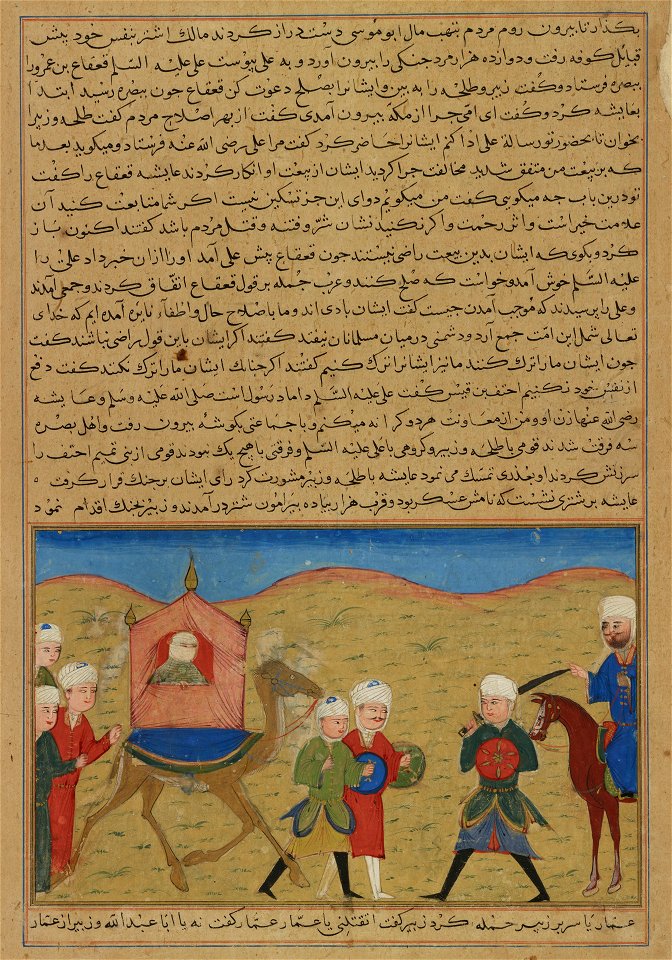 بگذار تا بیرون روم مردم بنهب مال ابو موسی دست دراز کردند مالک اشتر بنفس خود پیش
قبائل کوفه رفت و دوازده هزار مرد جنکی را بیرون آورد و به علی پیوست علی علیه السلم قعقاع بن عمرو را
ببصره فرستاد و کفت زبیر و طلحه را به بین و ایشانرا بصلح دعوت کن قعقاع جون ببصره رسید ابتدا
بعایشه کرد و کفت ای امی جرا از مکه بیرون آمدی کفت از بهر اصلاح مردم کفت طلحه و زبیر را
بخوان تا بحضور تو رسالة علی ادا کنم ایشانرا حاضر کرد کفت مرا علی رضی الله عنه فرستاد و میکوید بعد ما
که بر بیعت من متفق شدید مخالفت جرا کردید ایشان از بیعت او انکار کردند عایشه قعقاع را کفت
تو درین باب جه میکویی کفت من میکویم دوای این جز تسکین نیست اکر شما متابعت کنید آن
علامت خیر است و اثر رحمت و اکر نکنید نشان شر و فتنه و قتل مردم باشد کفتند اکنون باز
کرد و بکوی که ایشان بدین بیعت راضی نیستند جون قعقاع پیش علی آمد او را ازان خبر داد علی را
علیه السلم خوش آمد و خواست که صلح کنند و عرب جمله بر قول قعقاع اتفاق کردند و جمعی آمدند
و علی را پرسیدند که موجب آمدن جیست کفت ایشان بادی اند و ما باصلاح حال و اطفاء نایره آمده ایم که خدای
تعالی شمل این امت جمع آرد و دشمنی در میان مسلمانان نیفتد کفتند اکر ایشان باین قول راضی نباشند کفت
جون ایشان ما را ترک کنند ما نیز ایشانرا ترک کنیم کفتند اکر جنانک ایشان ما را ترک نکنند کفت دفع
از نفس خود نکنیم احنف بن قیس کفت علی علیه السلم داماد رسول است صلی الله علیه و سلم و عایشه
رضی الله عنها زن او و من از معاونت هر دو کرانه میکنم و با جماعتی بکوشه بیرون رفت و اهل بصره
سه فرقت شدند قومی با طلحه و زبیر و کروهی با علی علیه السلم و فرقتی با هیچ یک نبودند قومی از بنی تمیم احنف را
سرزنش کردند او بعذری تمسک می نمود عایشه با طلحه و زبیر مشورت کرد رای ایشان بر جنک قرار کرفت
عایشه بر شتری نشست که نامش عسکر بود و قرب هزار پیاده پیرامون شتر در آمدند و زبیر بجنک اقدام نمود
عمار یاسر بر زبیر حمله کرد زبیر کفت اتقتلنی یا عمار عمار کفت نه یا ابا عبد الله و زبیر از عمار